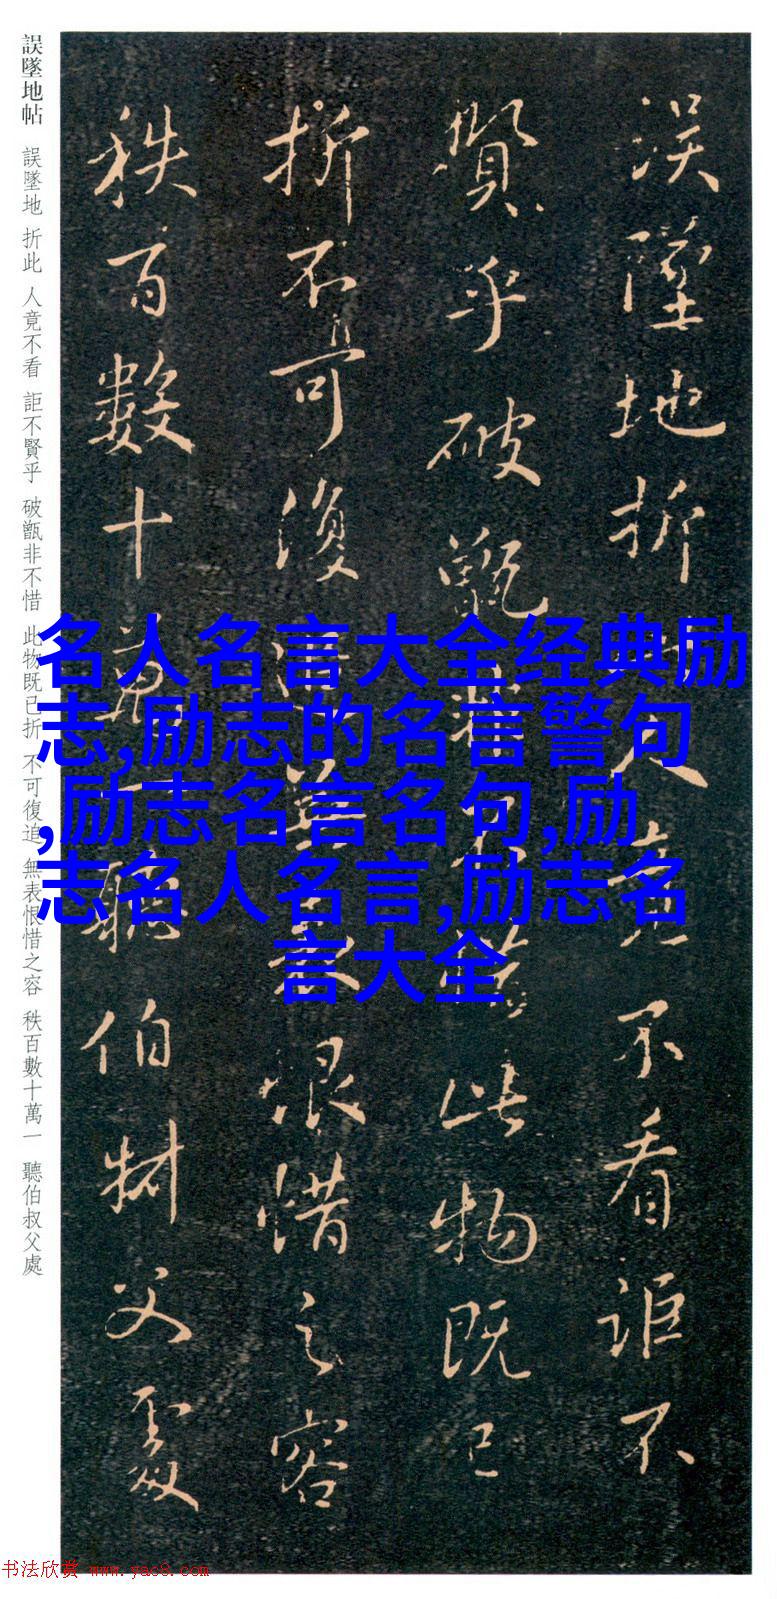 誤墜地折此人竟不看詎不
賢乎破甑非不惜此物既已
折不可復追無表恨惜之容
秩百數十萬一聽伯叔父處
誤墜地帖 誤墜地 折此 人竟不看 詎不賢乎 破甑非不惜 此物既已折 不可復追 無表恨惜之容 秩百數十萬一 聽伯叔父處
名人名言大全经典励
志,励志的名言警句
,励志名言名句,励
志名人名言,励志名
言大全
书法欣赏 www.yac8.com